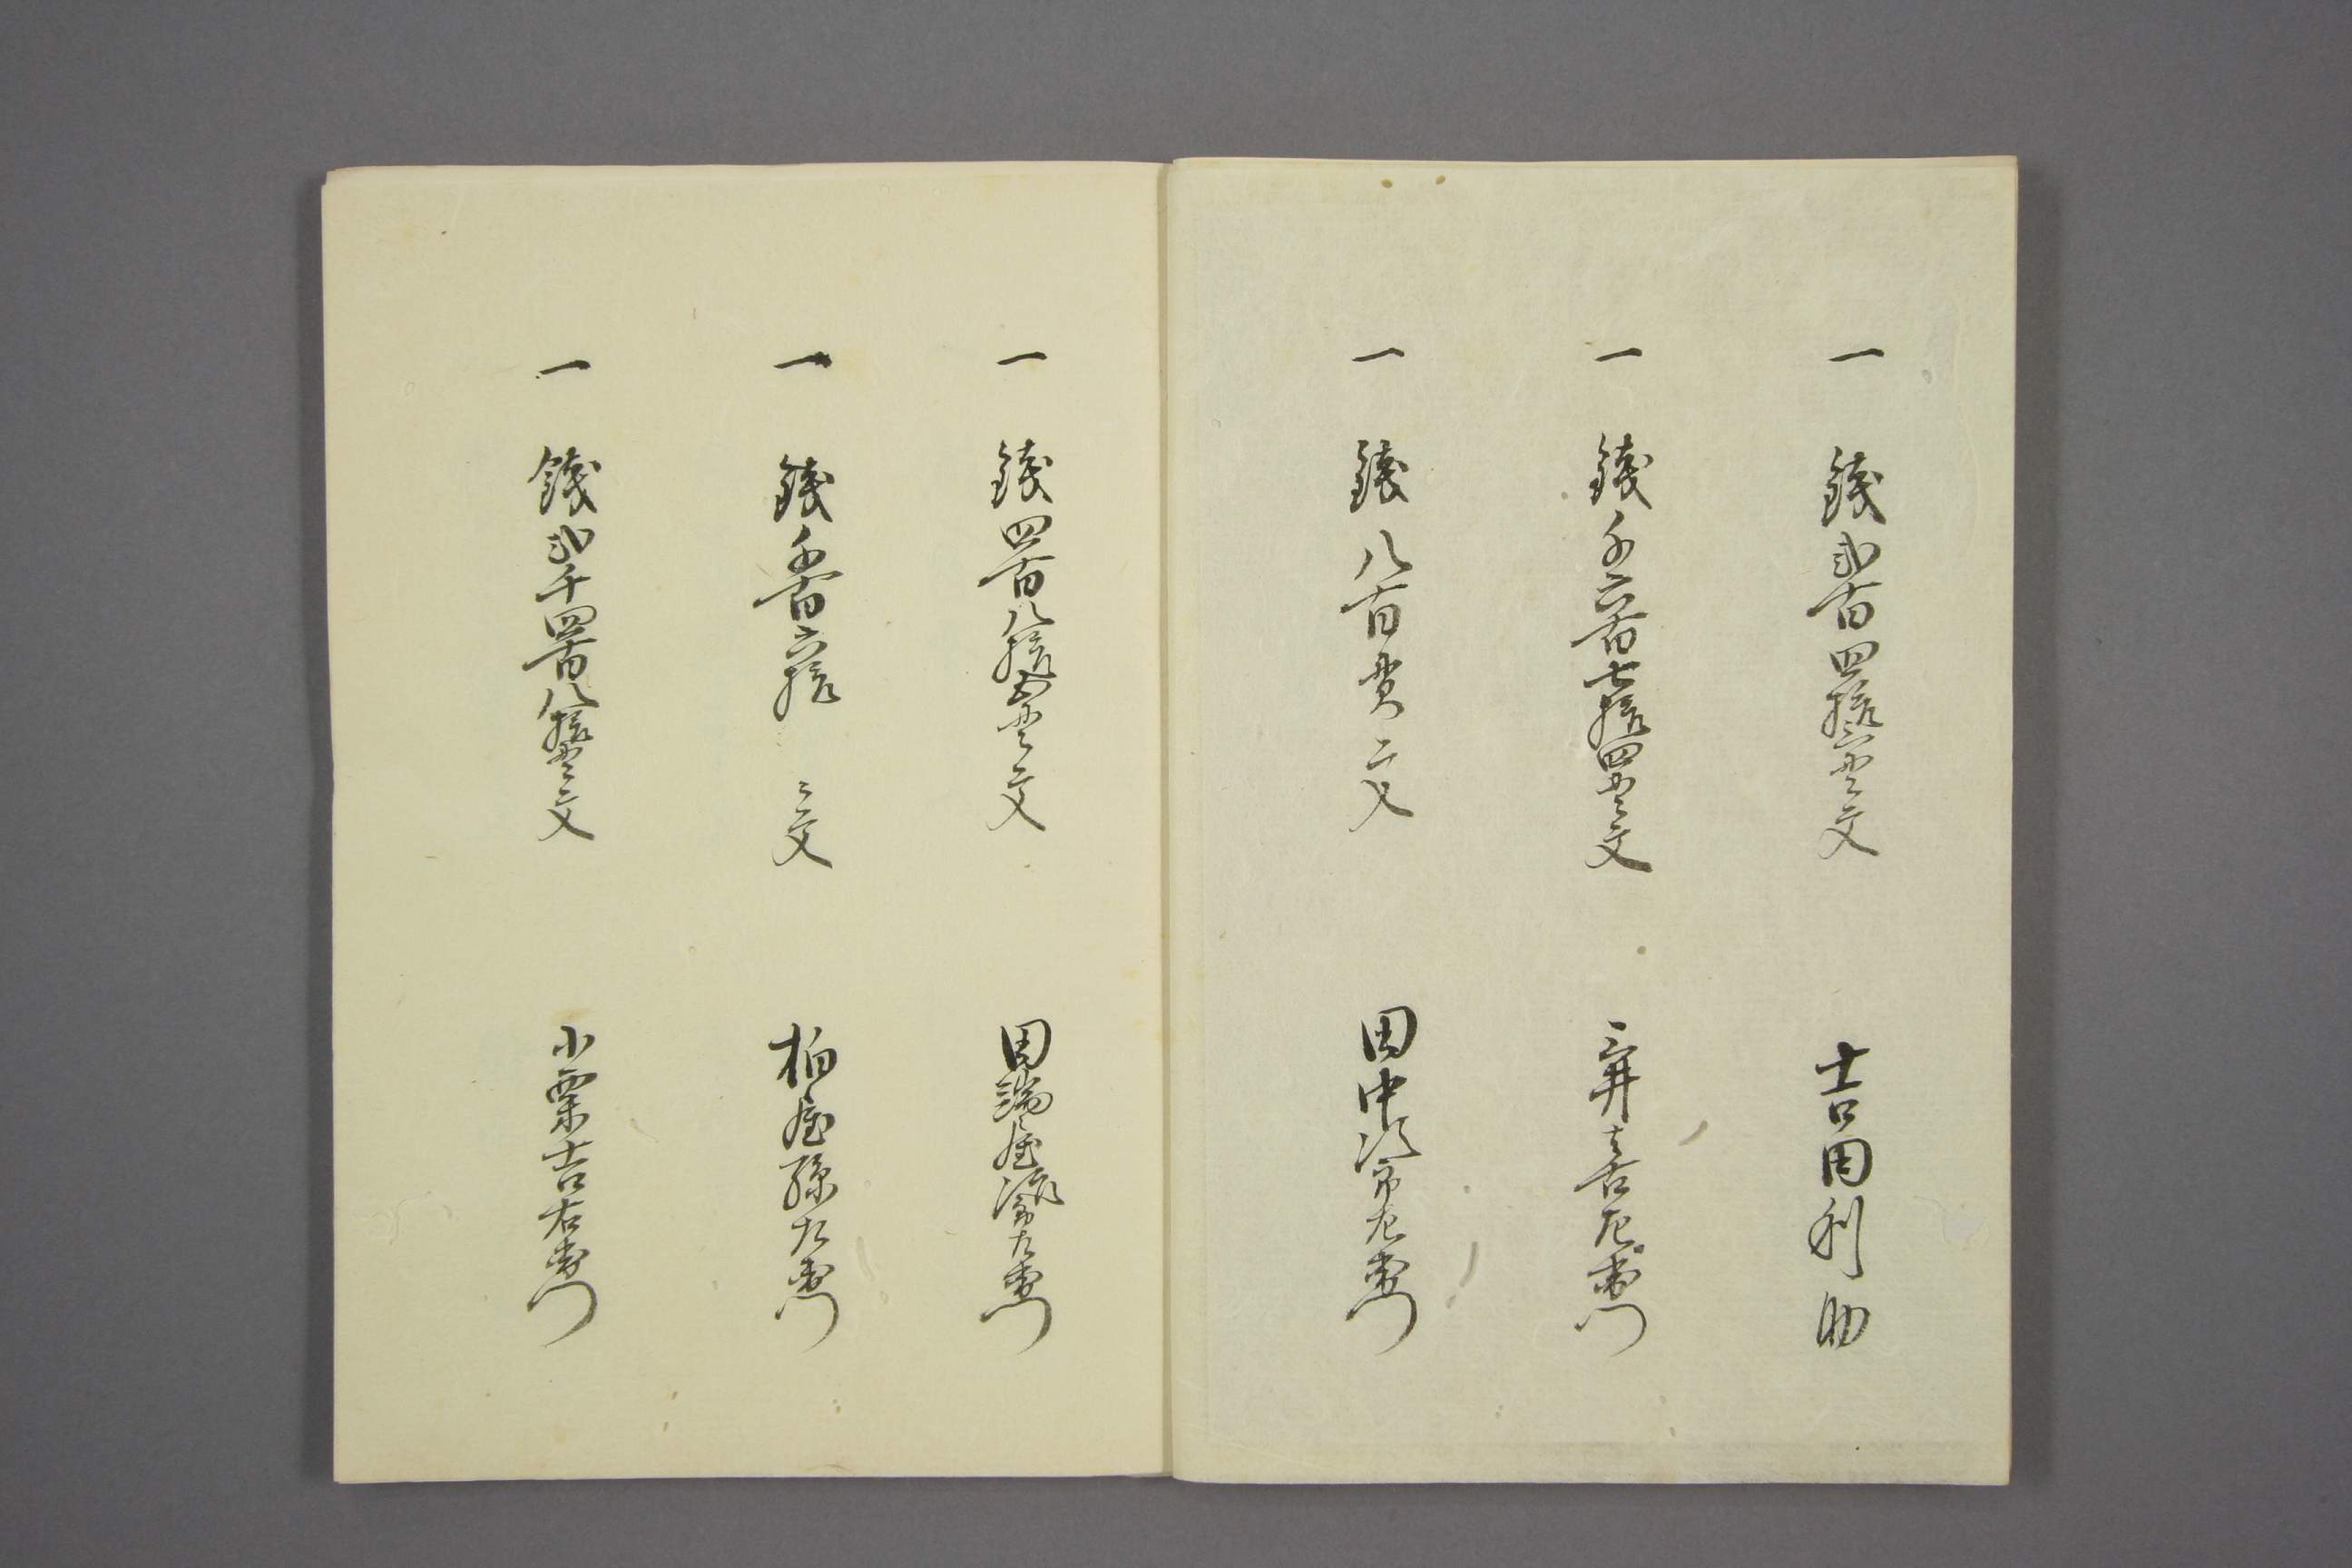 一　銭弐百四拾六貫文　吉田利助
一　銭千六百七拾四貫文　三井喜右衛門
一　銭八百貫文　田中次郎左衛門
一　銭四百八拾五貫文　田端屋次郎左衛門
一　銭千百六拾　文　柏屋孫左衛門
一　銭弐千四百八拾貫文　小栗吉右衛門